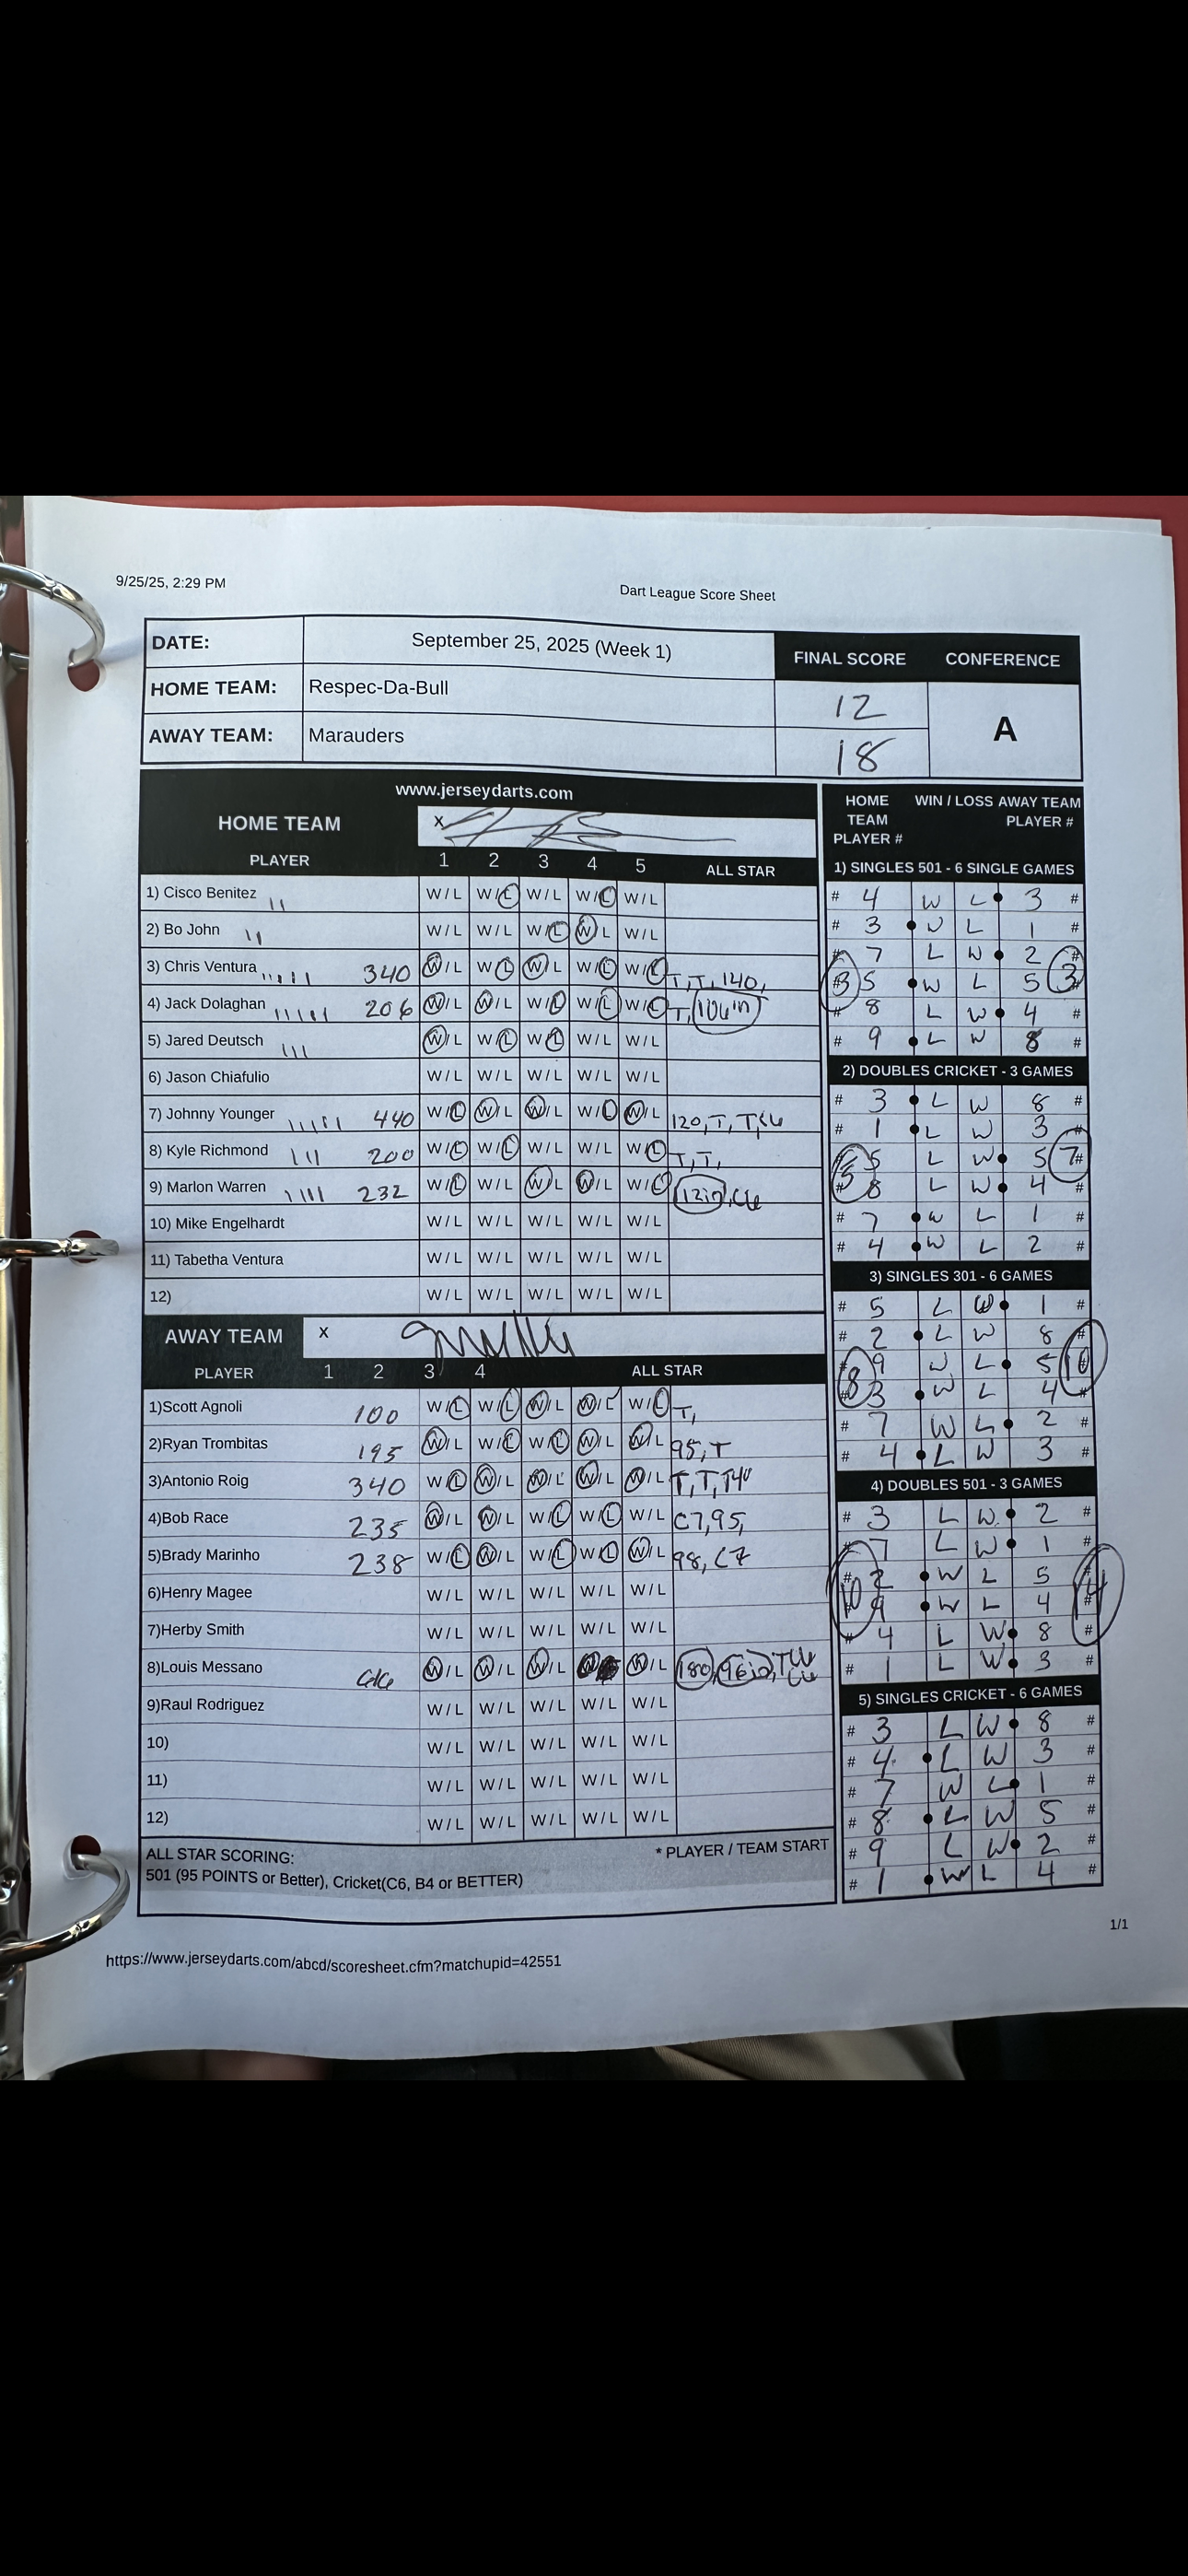 9/25/25, 2:29 PM
Dart League Score Sheet
DATE: September 25, 2025 (Week 1) FINAL SCORE CONFERENCE
HOME TEAM: Respec-Da-Bull 12 A
AWAY TEAM: Marauders 18
www.jerseydarts.com
HOME TEAM X
PLAYER 1 2 3 4 5 ALL STAR
1) Cisco Benitez W/L W/L W/L W/L W/L
2) Bo John W/L W/L W/L W/L W/L
3) Chris Ventura 340 W/L W/L W/L W/L W/L T, T, 140,
4) Jack Dolaghan 206 W/L W/L W/L W/L W/L T, 106in
5) Jared Deutsch W/L W/L W/L W/L W/L
6) Jason Chiafulio W/L W/L W/L W/L W/L
7) Johnny Younger 440 W/L W/L W/L W/L W/L 120, T, T, C6
8) Kyle Richmond 200 W/L W/L W/L W/L W/L T, T,
9) Marlon Warren 232 W/L W/L W/L W/L W/L C6
10) Mike Engelhardt W/L W/L W/L W/L W/L
11) Tabetha Ventura W/L W/L W/L W/L W/L
12) W/L W/L W/L W/L W/L
AWAY TEAM X
PLAYER 1 2 3 4 ALL STAR
1)Scott Agnoli 100 W/L W/L W/L W/L W/L T,
2)Ryan Trombitas 195 W/L W/L W/L W/L W/L 95, T
3)Antonio Roig 340 W/L W/L W/L W/L W/L T, T, 140
4)Bob Race 235 W/L W/L W/L W/L W/L C7, 95,
5)Brady Marinho 238 W/L W/L W/L W/L W/L 98, C7
6)Henry Magee W/L W/L W/L W/L W/L
7)Herby Smith W/L W/L W/L W/L W/L
8)Louis Messano W/L W/L W/L W/L 180, 96in,
9)Raul Rodriguez W/L W/L W/L W/L W/L
10) W/L W/L W/L W/L W/L
11) W/L W/L W/L W/L W/L
12) W/L W/L W/L W/L W/L
ALL STAR SCORING: * PLAYER / TEAM START
501 (95 POINTS or Better), Cricket(C6, B4 or BETTER)
HOME TEAM PLAYER # WIN / LOSS AWAY TEAM PLAYER #
1) SINGLES 501 - 6 SINGLE GAMES
# 4 W L 3 #
# 3 W L 1 #
# 7 L W 2 #
# 5 W L 5 #
# 8 L W 4 #
# 9 L W 8 #
3 3
2) DOUBLES CRICKET - 3 GAMES
# 3 L W 8 #
# 1 L W 3 #
# 5 L W 5 #
# 8 L W 4 #
# 7 W L 1 #
# 4 W L 2 #
5 7
3) SINGLES 301 - 6 GAMES
# 5 L W 1 #
# 2 L W 8 #
# 9 W L 5 #
# 3 W L 4 #
# 7 W L 2 #
# 4 L W 3 #
8 10
4) DOUBLES 501 - 3 GAMES
# 3 L W 2 #
# 7 L W 1 #
# 2 W L 5 #
# 9 W L 4 #
# 4 L W 8 #
# 1 L W 3 #
10
5) SINGLES CRICKET - 6 GAMES
# 3 L W 8 #
# 4 L W 3 #
# 7 W L 1 #
# 8 L W 5 #
# 9 L W 2 #
# 1 W L 4 #
1/1
https://www.jerseydarts.com/abcd/scoresheet.cfm?matchupid=42551